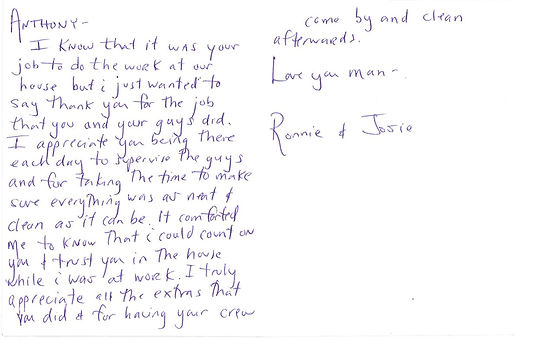 ANTHONY-
I know that it was your
job to do the work at our
house but i just wanted to
say thank you for the job
that you and your guys did.
I appreciate you being there
each day to supervise the guys
and for taking the time to make
sure everything was as neat &
clean as it can be. It comforted
me to know that i could count on
you & trust you in the house
while i was at work. I truly
appreciate all the extras that
you did & for having your crew
come by and clean
afterwards.
Love you man-.
Ronnie & Josie